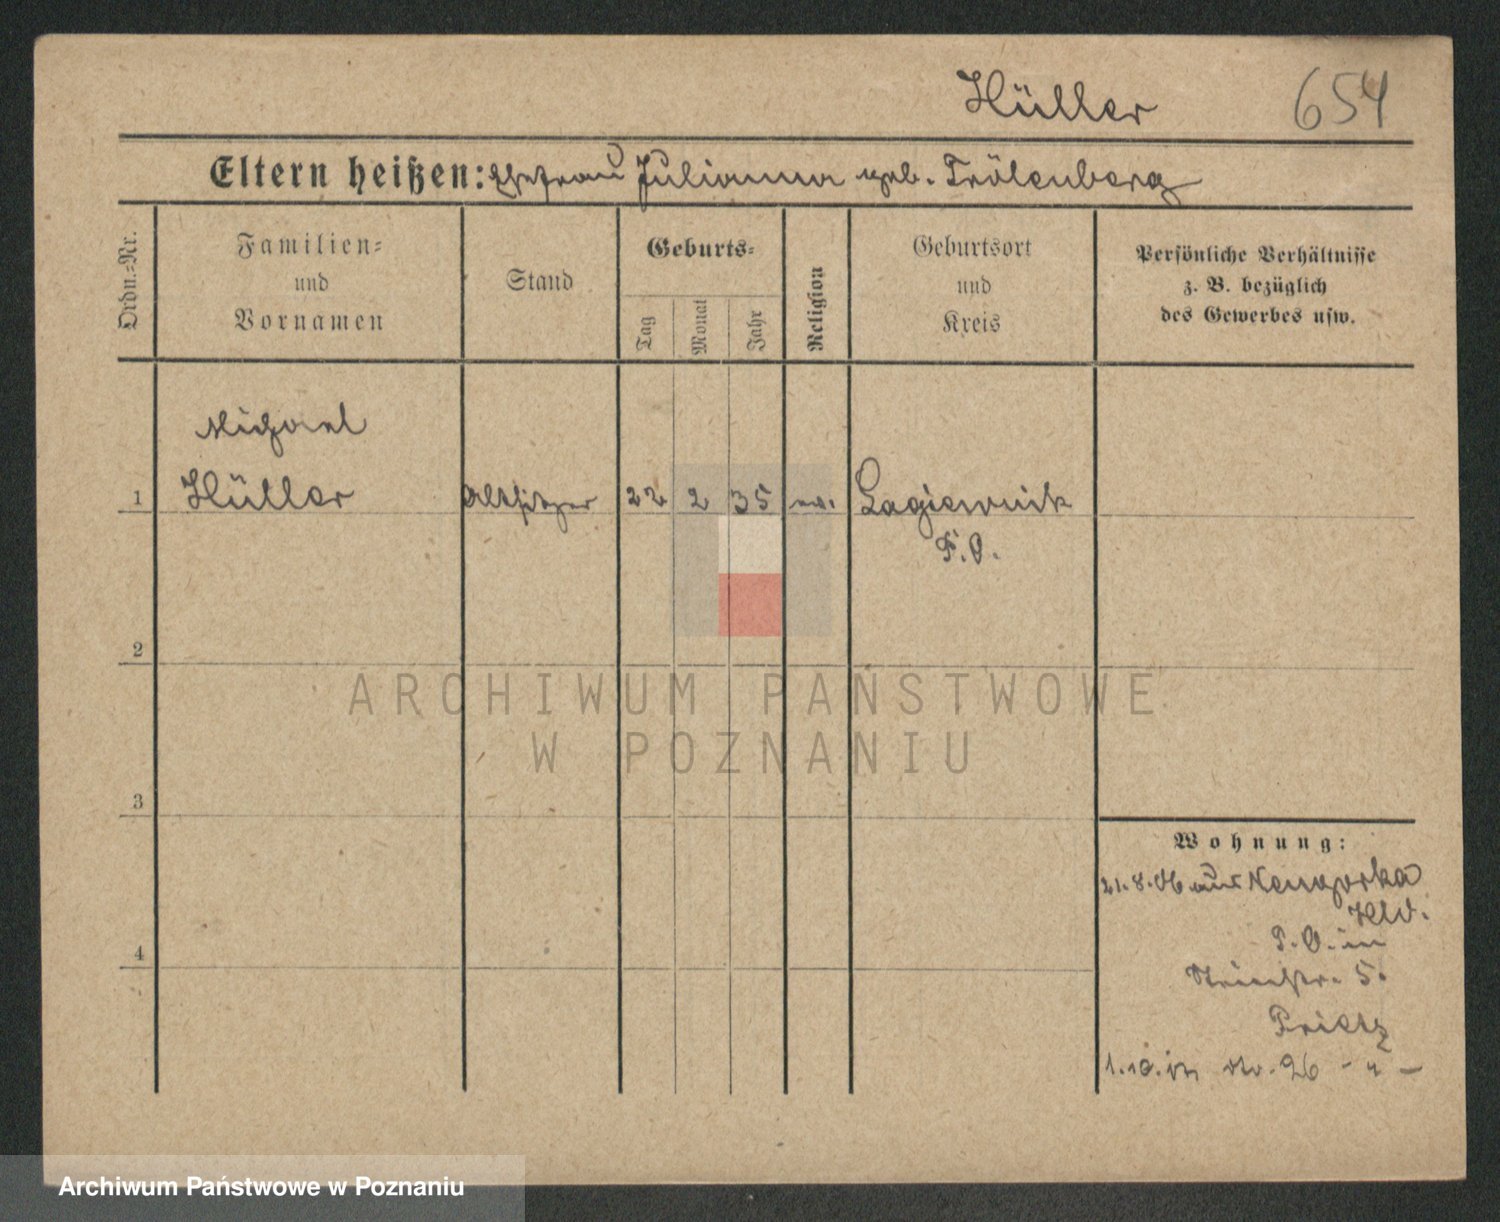 Hüller 654
Eltern heißen: Ehefrau Julianna geb. Trölenberg
Ordn.-Nr.
Familien-
und
Vornamen
Stand
Geburts-
Tag
Monat
Jahr
Religion
Geburtsort
und
Kreis
Persönliche Verhältnisse
z. B. bezüglich
des Gewerbes usw.
Michael
1 Hüller Altsitzer 22 2 35 ev. Lagiewnik
P.O.
2
ARCHIWUM PAŃSTWOWE
W POZNANIU
3
4
Wohnung:
21.8.06 aus
Hld.
P.O. in
5.
1.10. 26 - " -
Archiwum Państwowe w Poznaniu